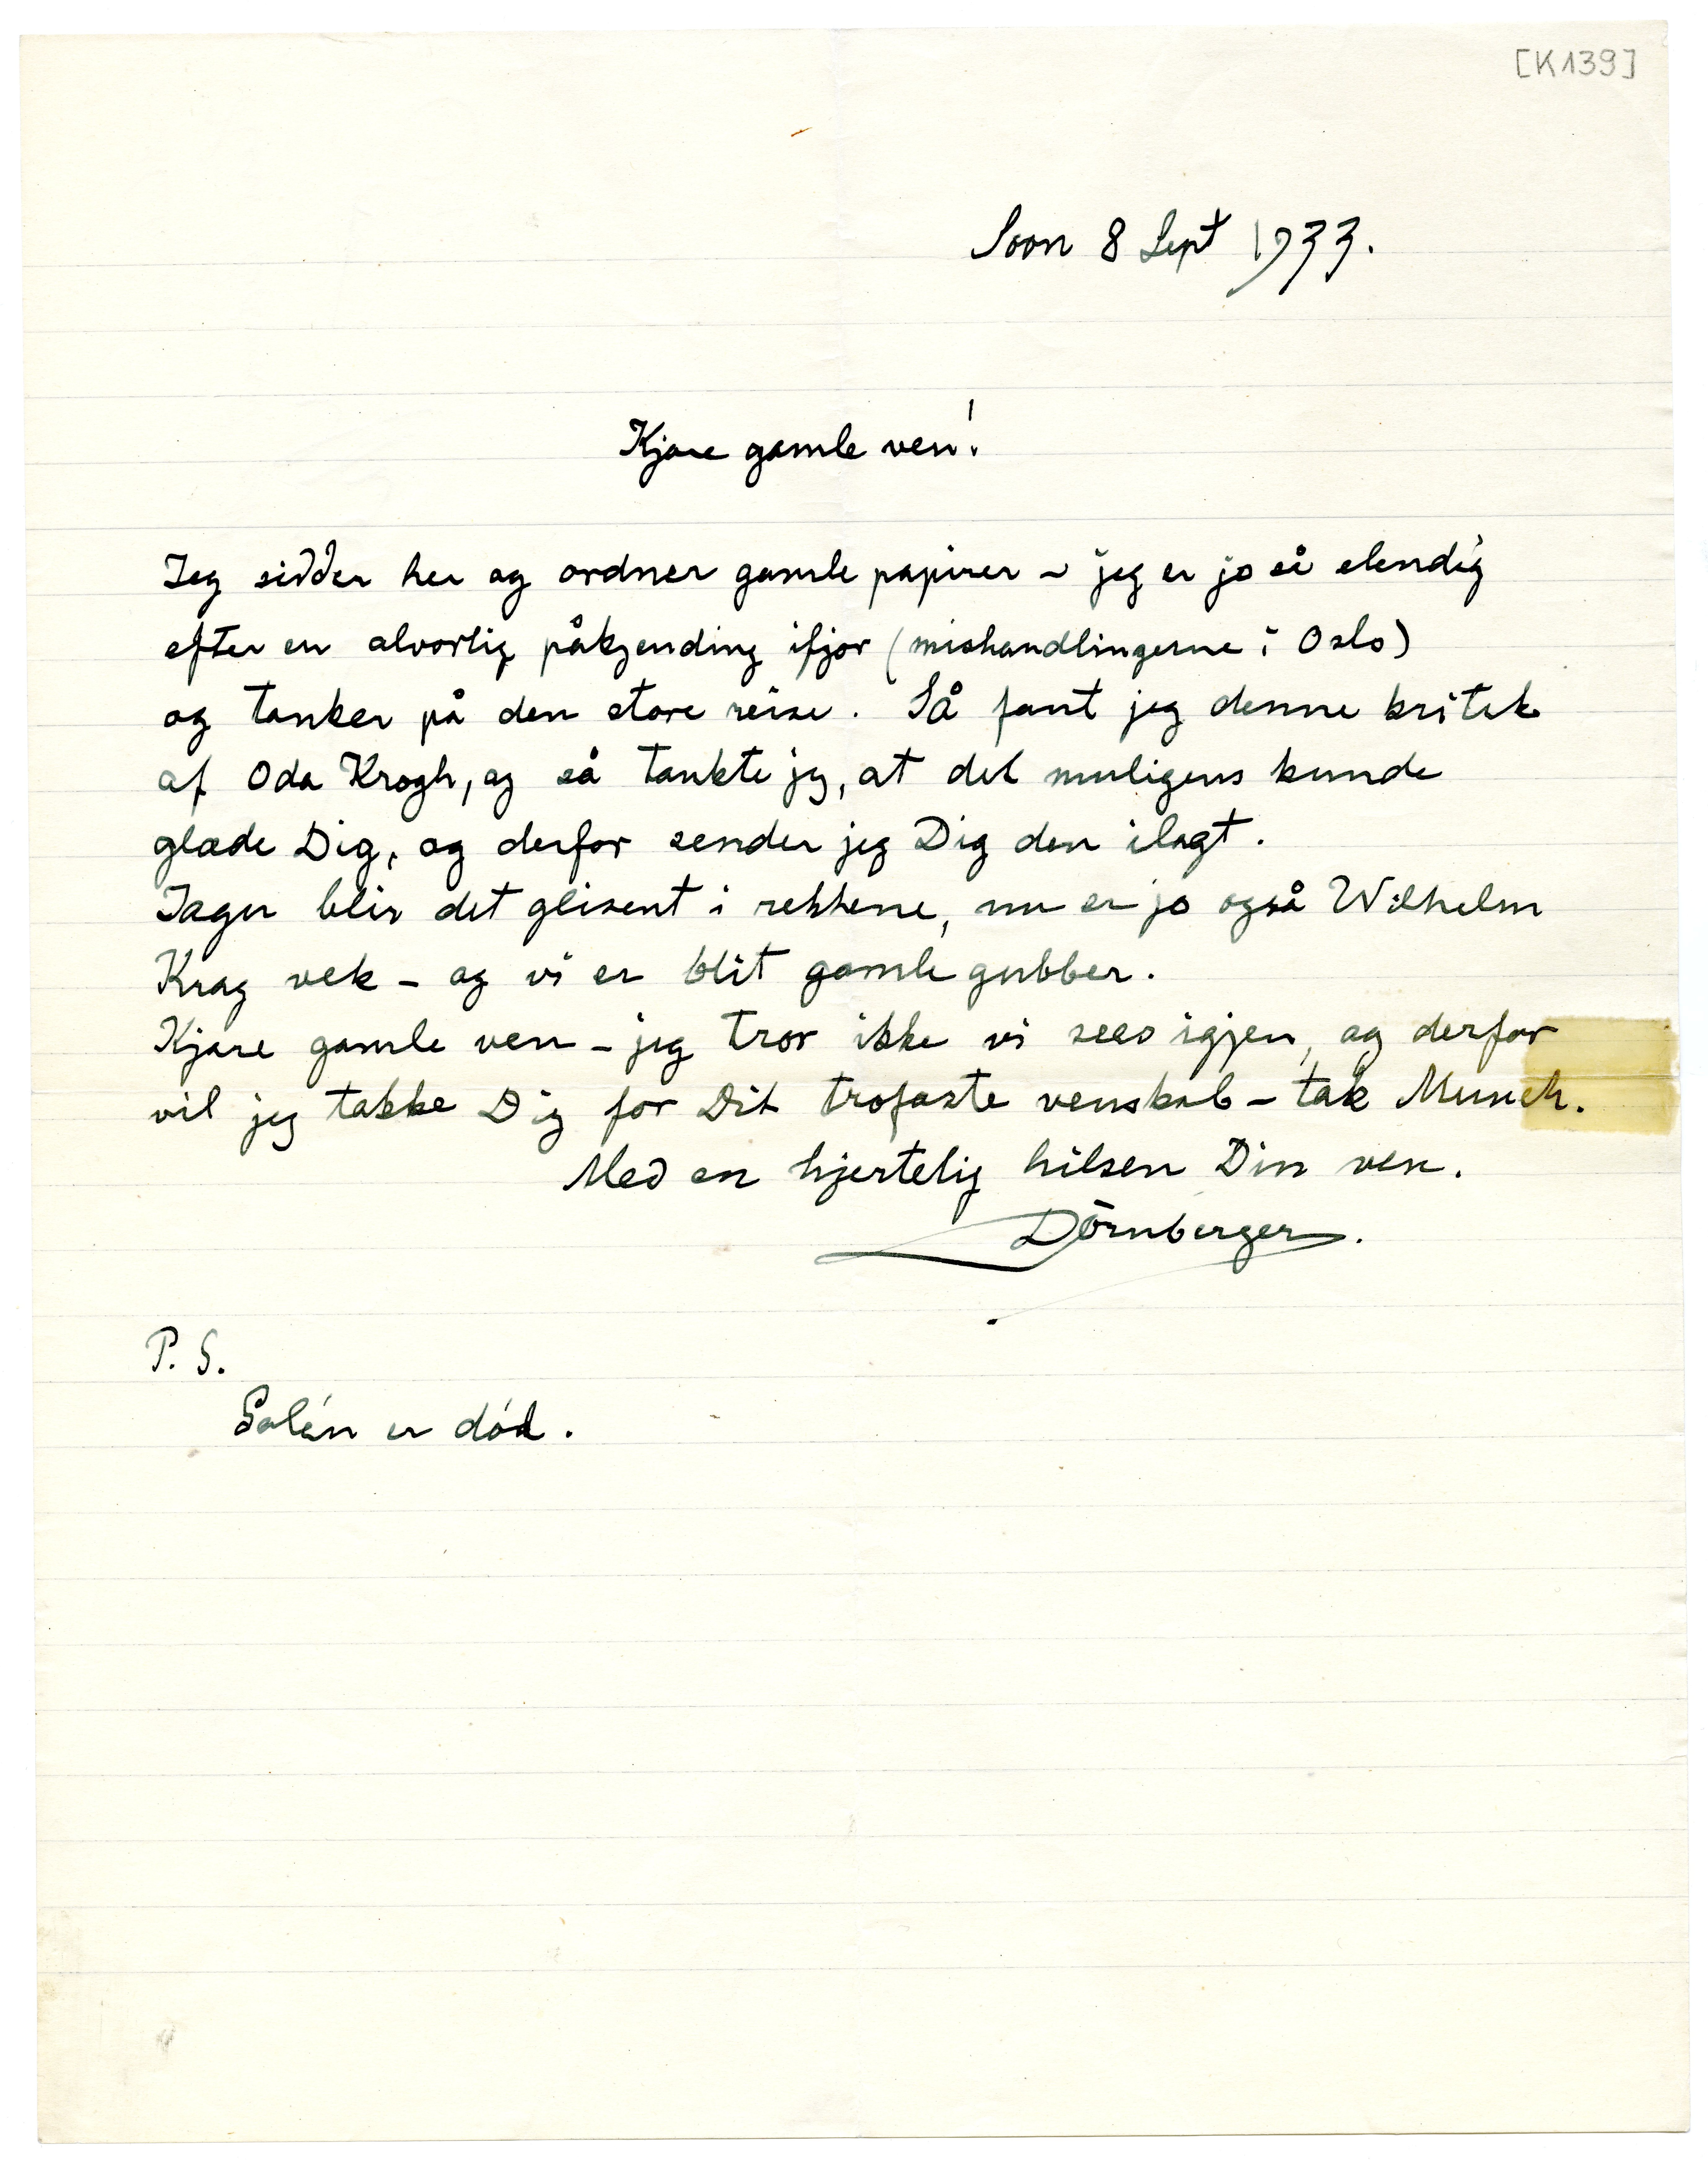 [K139]
Soon 8 Sept 1933.
Kjære gamle ven!
Jeg sidder her og ordner gamle papirer – jeg er jo så elendig
efter en alvorlig påkjending ifjor (mishandlingerne i Oslo)
og tænker på den store reise. Så fant jeg denne kritik
af Oda Krogh, og så tænkte jeg, at det muligens kunde
glæde Dig, og derfor sender jeg Dig den ilagt.
Tager blir det glisent i rekkene, nu er jo også Wilhelm
Krag vek – og vi er blit gamle gubber.
Kjære gamle ven – jeg tror ikke vi sees igjen, og derfor
vil jeg takke Dig for Dit trofaste venskab – tak Munch.
Med en hjertelig hilsen Din ven.
Dörnberger.
P. S.
Salén er död.